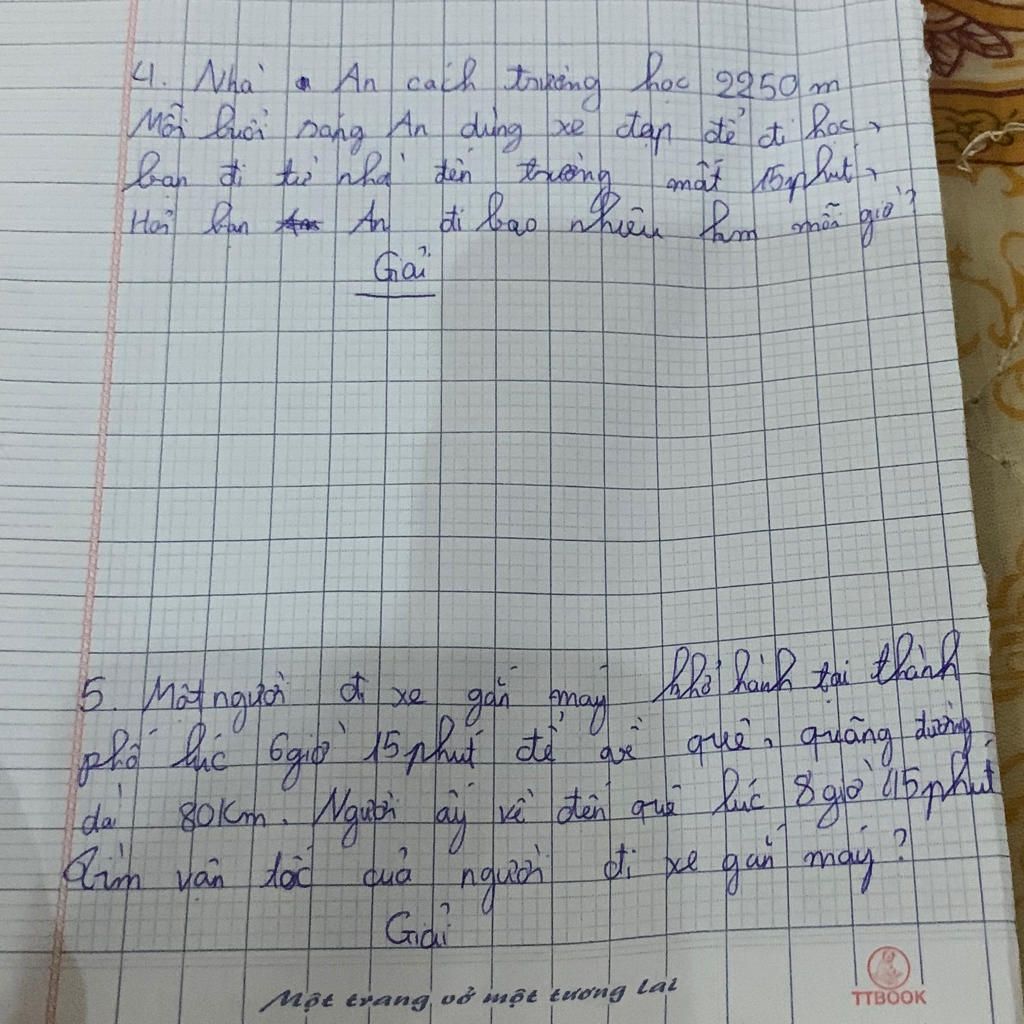 4. Nhà An cách trường học 2250 m
Mỗi buổi sáng An dùng xe đạp để đi học,
bạn đi từ nhà đến trường mất 15 phút,
Hỏi bạn An đi bao nhiêu km mỗi giờ?
Giải
5. Một người đi xe gắn máy khởi hành tại thành
phố lúc 6 giờ 15 phút để về quê, quãng đường
dài 80 Km. Người ấy về đến quê lúc 8 giờ 15 phút
Tìm vận tốc của người đi xe gắn máy?
Giải
Một trang vở một tương lai
TTBOOK